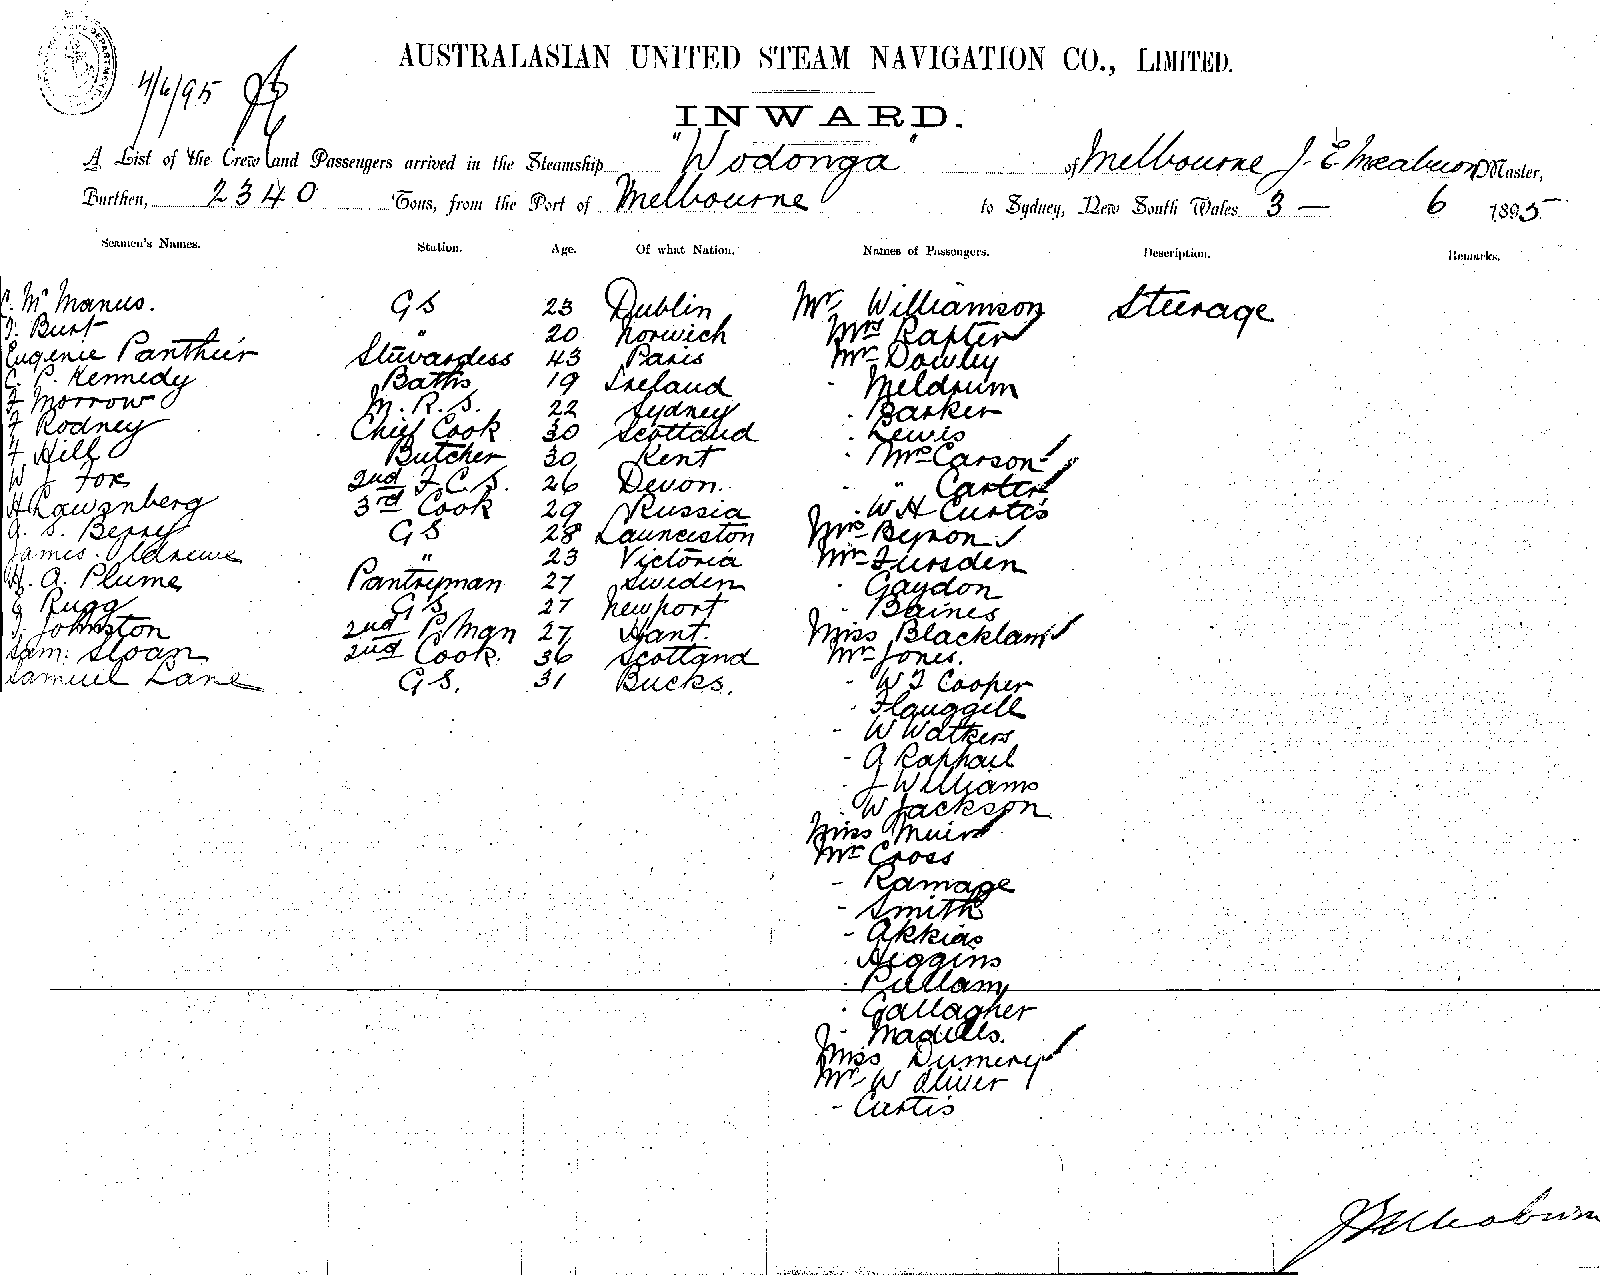 4/6/95
AUSTRALASIAN UNITED STEAM NAVIGATION CO., LIMITED.
INWARD.
A List of the Crew and Passengers arrived in the Steamship "Wodonga" of Melbourne J. E Meaburn Master,
Burthen, 2340 Tons, from the Port of Melbourne to Sydney, New South Wales 3 — 6 1895
Seamen's Names. Station. Age. Of what Nation. Names of Passengers. Description. Remarks.
Mc Manus. G S 23 Dublin Mr Williamson Steerage
Burt " 20 Norwich Mrs Rapter
Eugenie Panthier Stewardess 43 Paris Mr Dowley
P. Kennedy Baths 19 Ireland - Meldrum
F Morrow M. R. S. 22 Sydney - Barker
F Rodney Chief Cook 30 Scotland - Lewis
F. Hill Butcher 30 Kent - Mrs Carson
W J Fox 2nd F. C. S. 26 Devon. " Carter
H Lowenberg 3rd Cook 29 Russia W H Curtis
S. Berry G S 28 Launceston Mrs Byron
James Andrews " 23 Victoria Mr Fursden
H. A. Plume Pantryman 27 Sweden - Gaydon
Rugg G S 27 Newport - Baines
Johnston 2nd P Man 27 Hant. Miss Blacklam
Sam: Sloan 2nd Cook. 36 Scotland Mr Jones.
Samuel Lane G S. 31 Bucks. - W J Cooper
- 
- W Watkers
- A Raphael
- J Williams
- W Jackson
Miss Muir
Mr Cross
- Ramage
- Smith
- Akkias
- Higgins
- Pullam
- Gallagher
- Madills.
Miss Dumery
Mr W Oliver
- Curtis
J E Meaburn